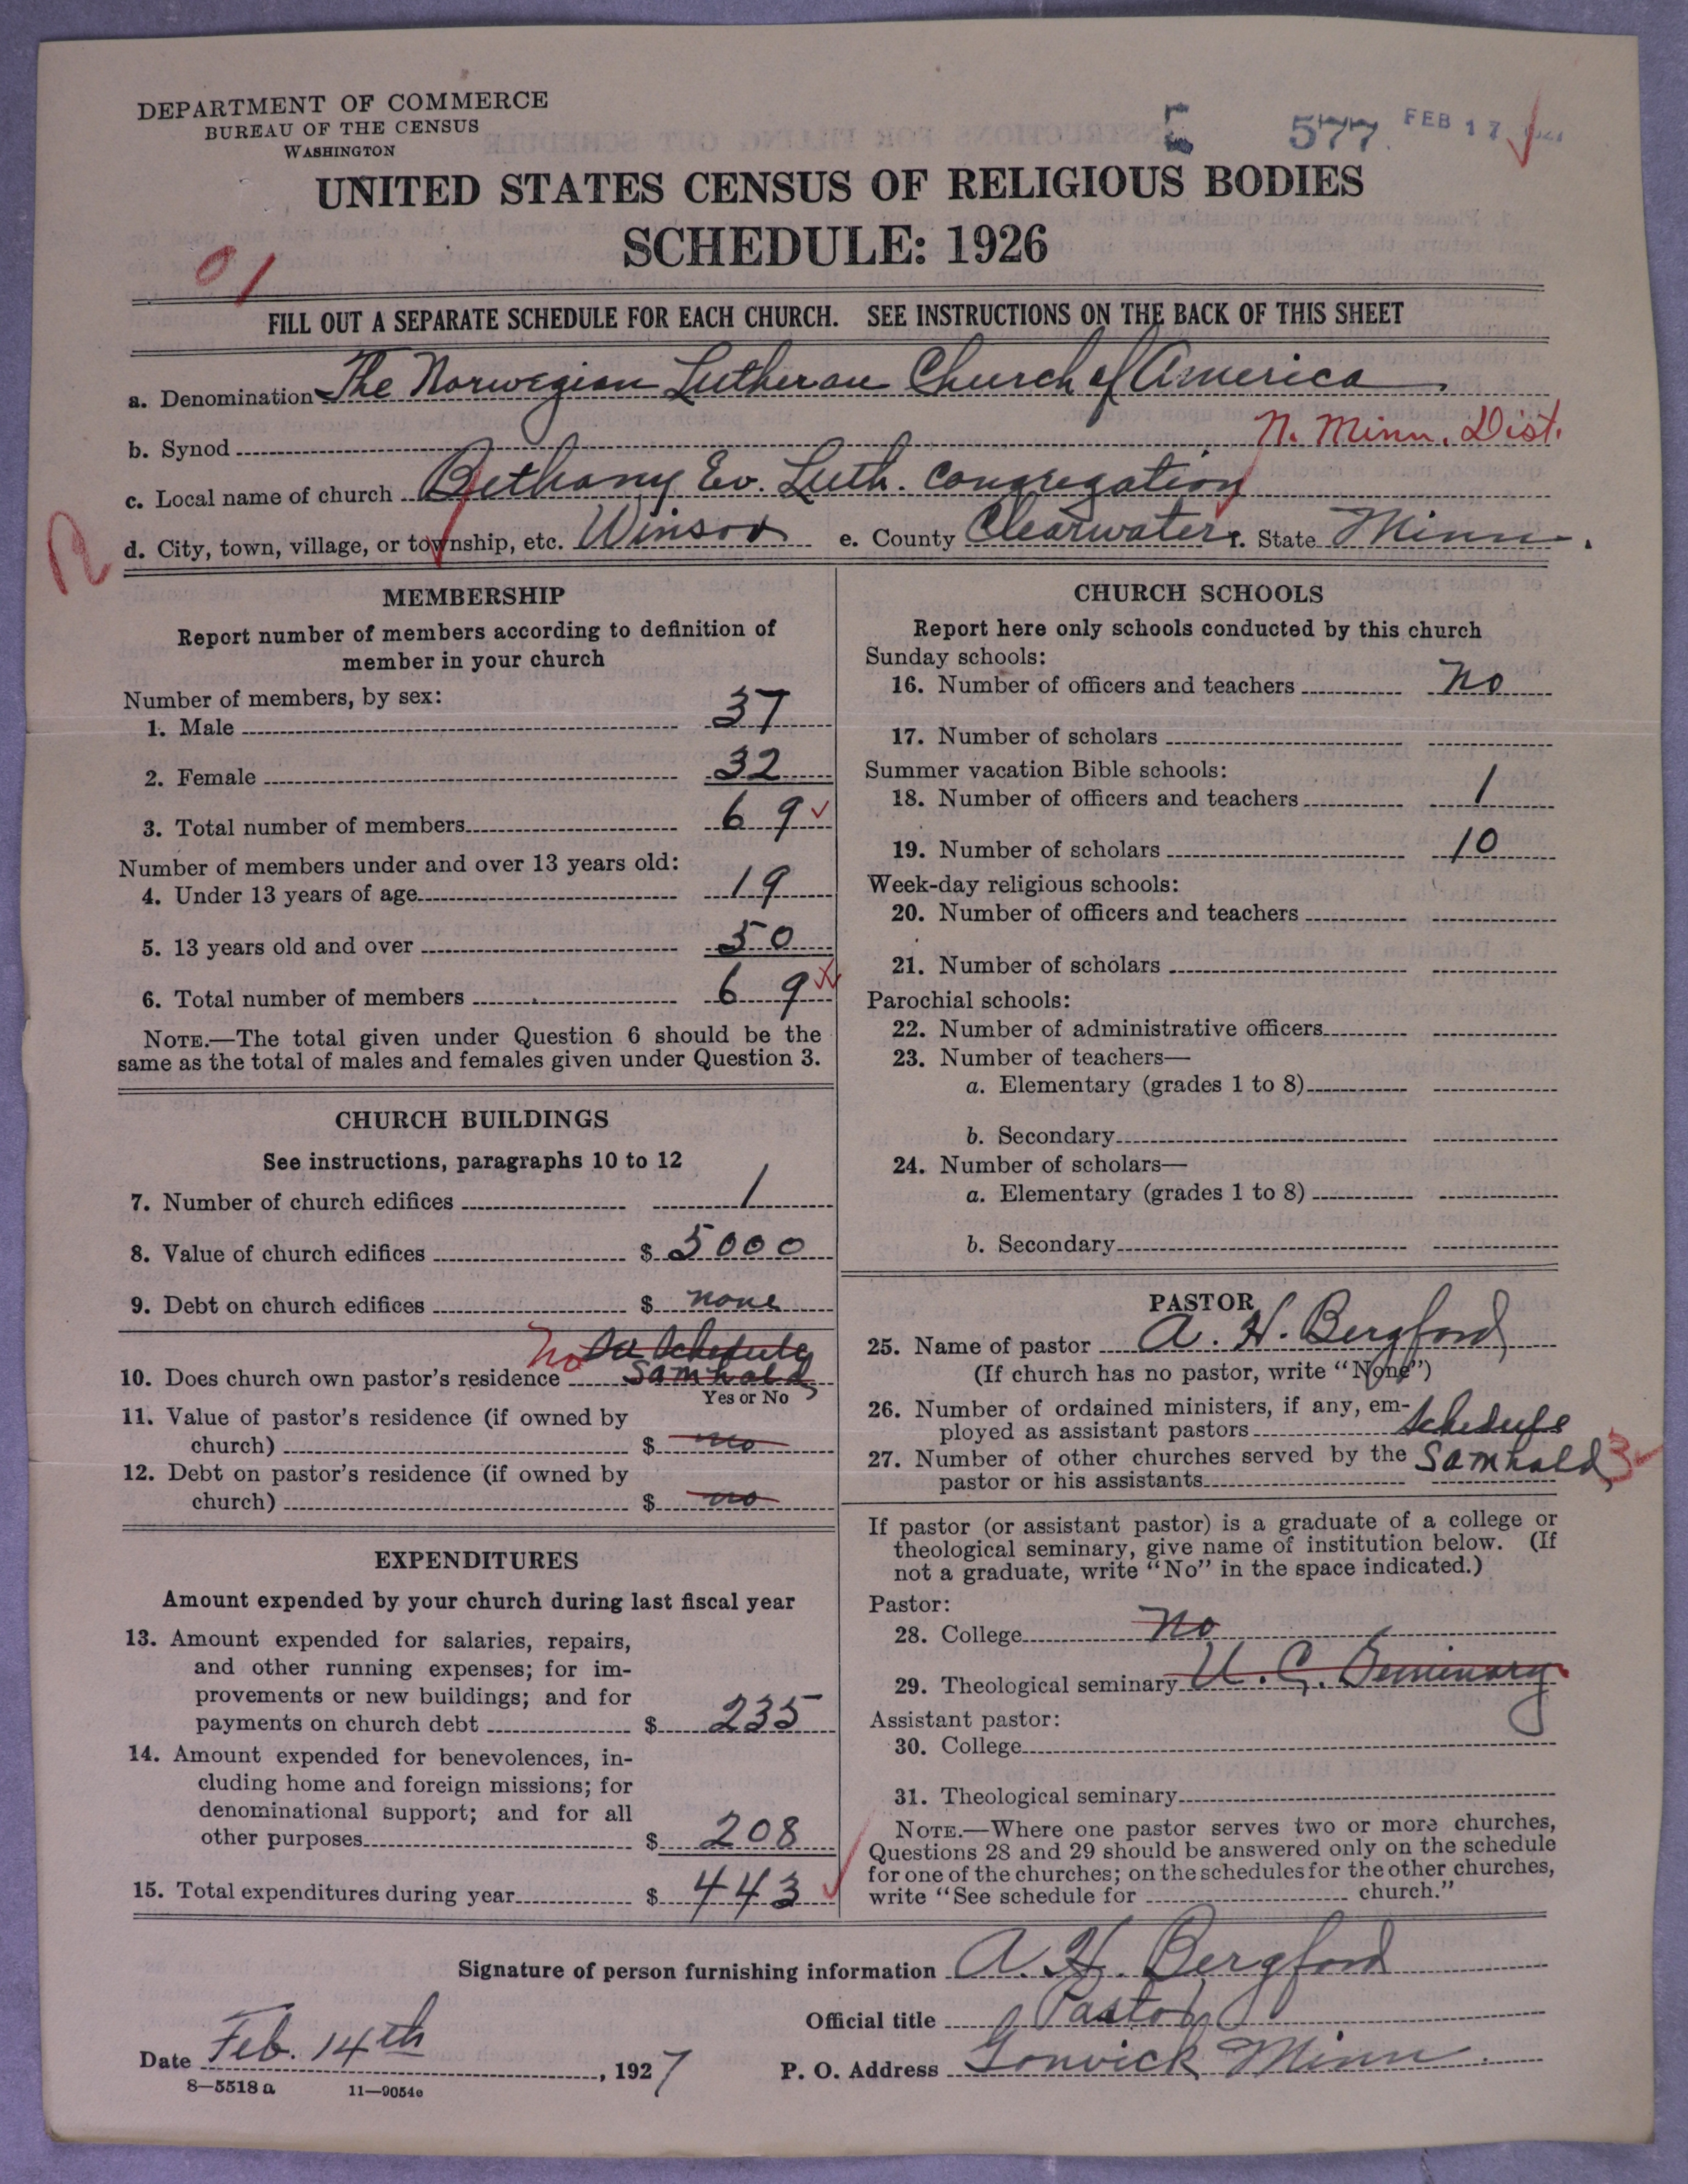 DEPARTMENT OF COMMERCE
BUREAU OF THE CENSUS
WASHINGTON
E 577. FEB 17
UNITED STATES CENSUS OF RELIGIOUS BODIES
SCHEDULE: 1926
01
FILL OUT A SEPARATE SCHEDULE FOR EACH CHURCH. SEE INSTRUCTIONS ON THE BACK OF THIS SHEET
a. Denomination The Norwegian Lutheran Church of America
b. Synod N. Minn. Dist.
c. Local name of church Bethany Ev. Luth. Congregation
R
d. City, town, village, or township, etc. Winsor e. County Clearwater f. State Minn.
MEMBERSHIP
Report number of members according to definition of
member in your church
Number of members, by sex:
1. Male 37
2. Female 32
3. Total number of members 69
Number of members under and over 13 years old:
4. Under 13 years of age 19
5. 13 years old and over 50
6. Total number of members 69
NOTE.—The total given under Question 6 should be the
same as the total of males and females given under Question 3.
CHURCH BUILDINGS
See instructions, paragraphs 10 to 12
7. Number of church edifices 1
8. Value of church edifices $ 5000
9. Debt on church edifices $ none
No See Schedule
10. Does church own pastor's residence Samhold
Yes or No
11. Value of pastor's residence (if owned by
church) $ no
12. Debt on pastor's residence (if owned by
church) $ no
EXPENDITURES
Amount expended by your church during last fiscal year
13. Amount expended for salaries, repairs,
and other running expenses; for im-
provements or new buildings; and for
payments on church debt $ 235
14. Amount expended for benevolences, in-
cluding home and foreign missions; for
denominational support; and for all
other purposes $ 208
15. Total expenditures during year $ 443
CHURCH SCHOOLS
Report here only schools conducted by this church
Sunday schools:
16. Number of officers and teachers no
17. Number of scholars
Summer vacation Bible schools:
18. Number of officers and teachers 1
19. Number of scholars 10
Week-day religious schools:
20. Number of officers and teachers
21. Number of scholars
Parochial schools:
22. Number of administrative officers
23. Number of teachers—
a. Elementary (grades 1 to 8)
b. Secondary
24. Number of scholars—
a. Elementary (grades 1 to 8)
b. Secondary
PASTOR
25. Name of pastor A. H. Bergford
(If church has no pastor, write "None")
26. Number of ordained ministers, if any, em-
ployed as assistant pastors Schedule
27. Number of other churches served by the Samhold 3
pastor or his assistants
If pastor (or assistant pastor) is a graduate of a college or
theological seminary, give name of institution below. (If
not a graduate, write "No" in the space indicated.)
Pastor:
28. College no
29. Theological seminary U. C. Seminary
Assistant pastor:
30. College
31. Theological seminary
NOTE.—Where one pastor serves two or more churches,
Questions 28 and 29 should be answered only on the schedule
for one of the churches; on the schedules for the other churches,
write "See schedule for church."
Signature of person furnishing information A. H. Bergford
Official title Pastor
Date Feb. 14th, 1927 P. O. Address Gonvick Minn.
8—5518a 11—9054e